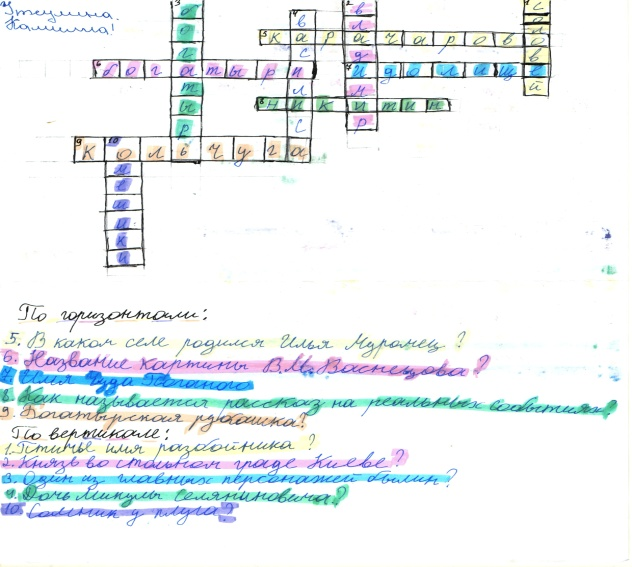 Камилла!
5 Карачарово
6 богатыри
7 Идолище
8 никитин
9 Кольчуга
По горизонтали:
5. В каком селе родился Илья Муромец?
6. Название картины В.М. Васнецова?
7. Имя Чуда Поганого
8. Как называется рассказ на реальных событиях?
9. Богатырская рубашка?
По вертикале:
1. Птичье имя разбойника?
2. Князь во стольном граде Киеве?
3. Один из главных персонажей былин?
4. Дочь Микулы Селяниновича?
10. у плуга?